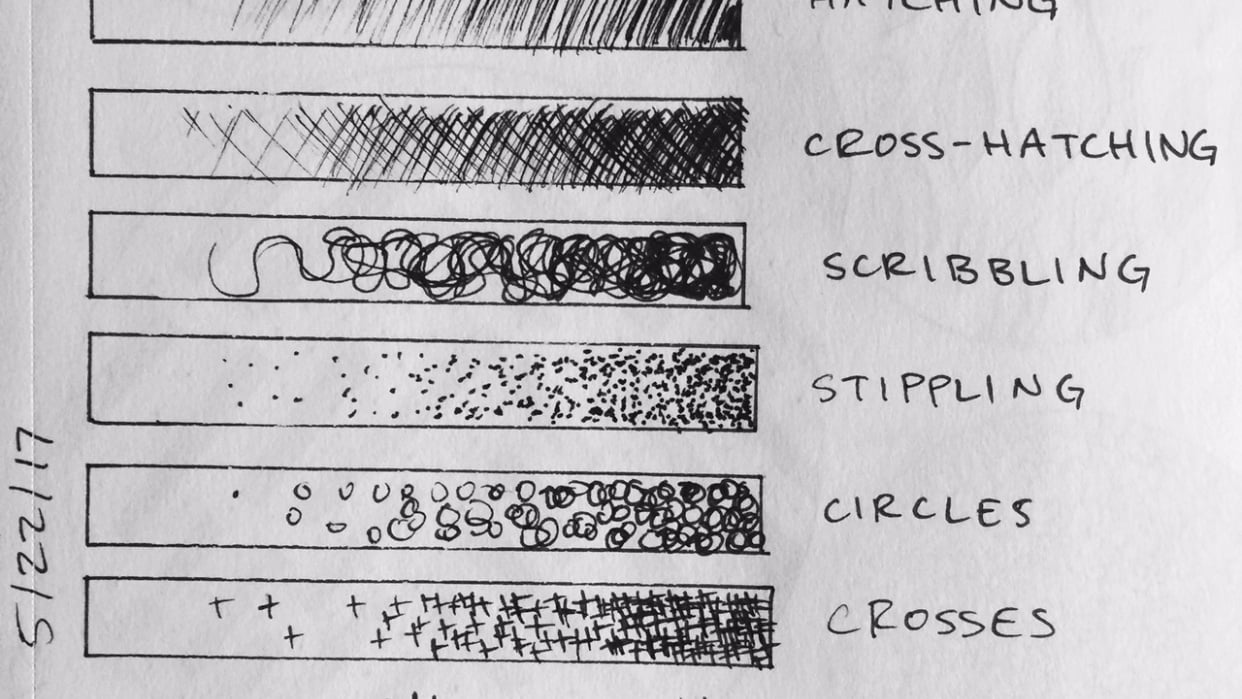 HATCHING
CROSS-HATCHING
SCRIBBLING
STIPPLING
CIRCLES
CROSSES
5/22/17